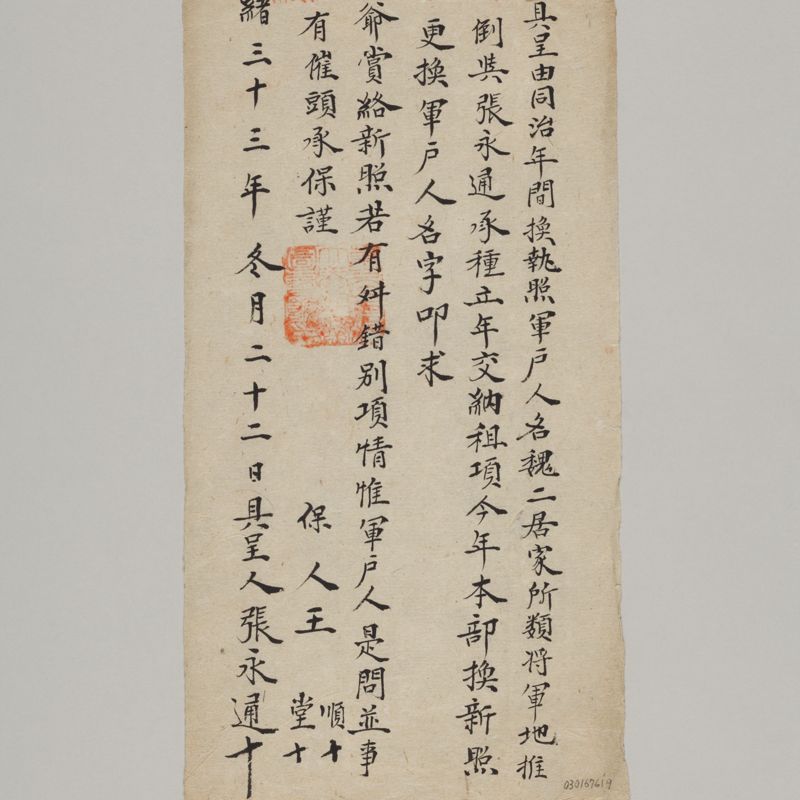 具呈由同治年間換執照軍戶人名魏二居家所類将軍地推
倒與張永通承種立年交納租項今年本部換新照
更換軍戶人名字叩求
爺賞給新照若有舛錯別項情惟軍戶人是問並事
有催頭承保謹
保人王順十
堂十
緒三十三年冬月二十二日具呈人張永通十
030167619